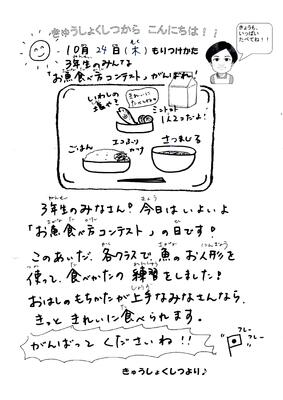 きゅうしょくしつから こんにちは!!
きょうも、
いっぱい
たべてね!!
10月24日(木)もりつけかた
3年生のみんな
「お魚食べ方コンテスト」がんばれ!
いわしの
塩やき
きれいに
たべてね
ミニトマト
1人2つだよ!
ごはん
さつまじる
3年生のみなさん!今日はいよいよ
「お魚食べ方コンテスト」の日です!
このあいだ、各クラスで魚のお人形を
使って、食べかたの練習をしました!
おはしのもちかたが上手なみなさんなら、
きっときれいに食べられます。
がんばってくださいね!!
フレー
フレー
きゅうしょくしつより♪